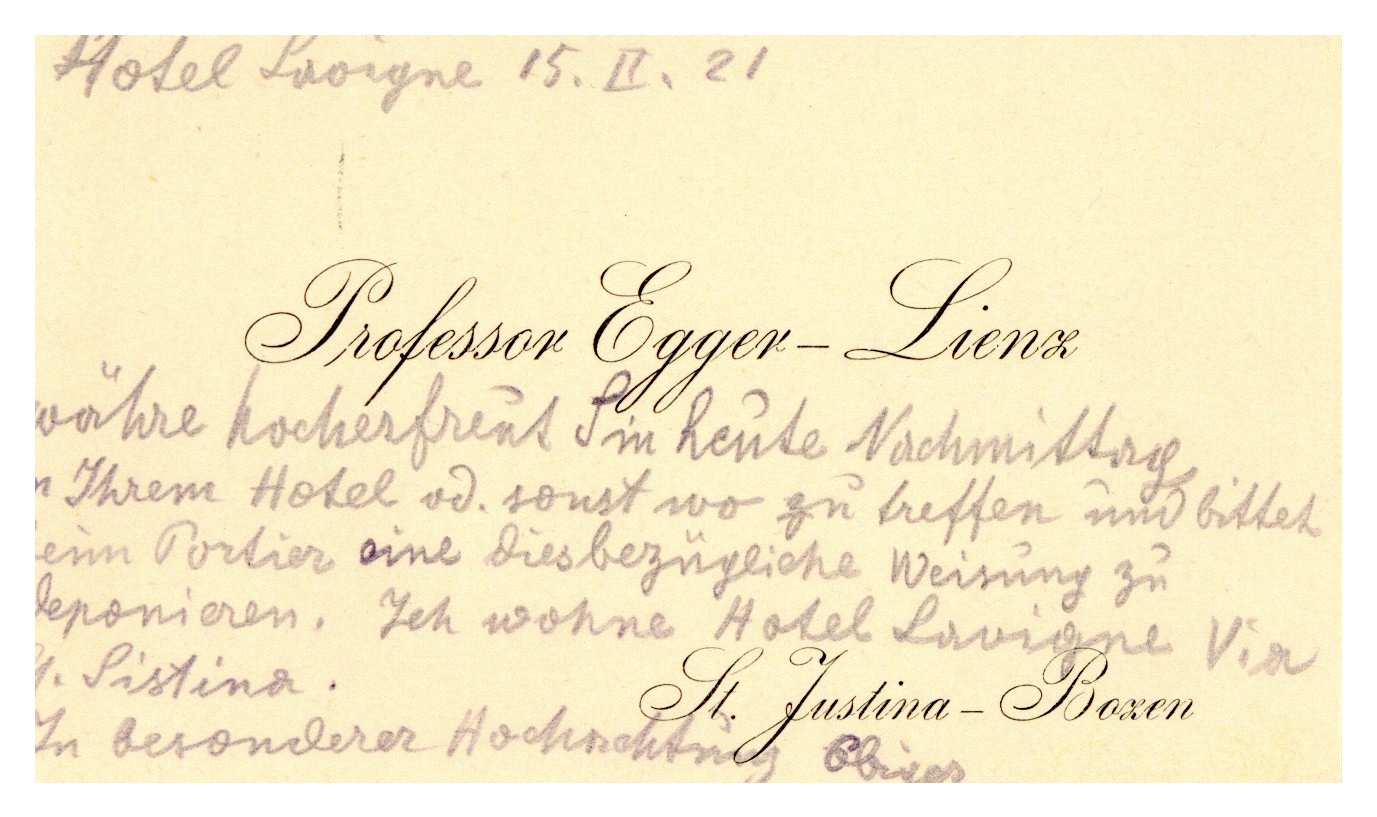 Hotel Lavigne 15. II. 21
Professor Egger-Lienz
währe hocherfreut Sie heute Nachmittag
n Ihrem Hotel od. sonst wo zu treffen und bittet
beim Portier eine diesbezügliche Weisung zu
deponieren. Ich wohne Hotel Lavigne Via
Sistina.
St. Justina-Bozen
In besonderer Hochachtung Obiger